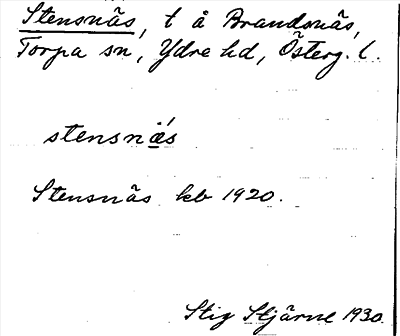 Stensnäs, t å Brandsnäs,
Torpa sn, Ydre hd, Österg. l.
stensnä́s
Stensnäs kb 1920.
Stig Stjärne 1930.